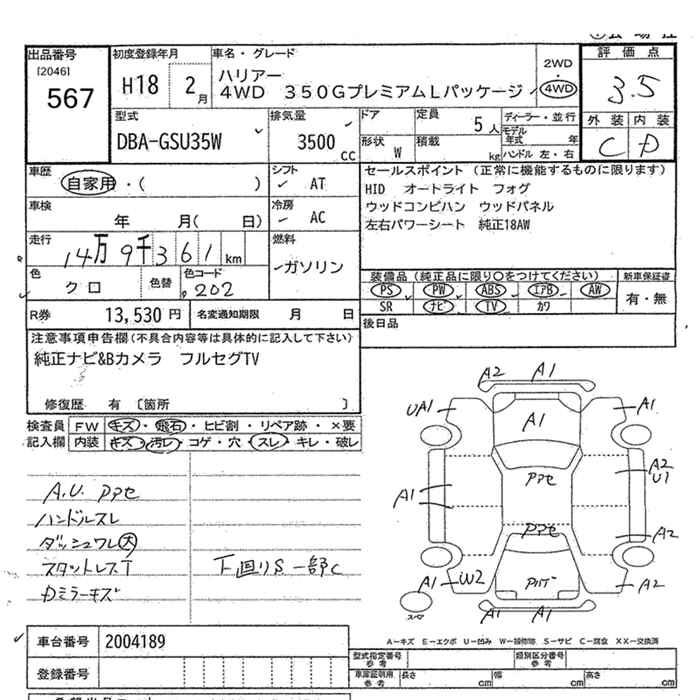 出品番号
[2046]
567
初度登録年月
H18 2月
車名・グレード
ハリアー
4WD 350GプレミアムLパッケージ
2WD
4WD
評価点
3.5
外装 内装
C D
型式
DBA-GSU35W
排気量
3500 cc
ドア
形状 W
定員
5人
積載
kg
ディーラー・並行
モデル年式 年
ハンドル 左・右
車歴
自家用・( )
シフト
AT
車検
年 月( 日)
冷房
AC
走行
14万9千361km
燃料
ガソリン
色
クロ
色替
色コード
202
セールスポイント (正常に機能するものに限ります)
HID オートライト フォグ
ウッドコンビハン ウッドパネル
左右パワーシート 純正18AW
装備品 (純正品に限り〇をつけてください)
新車保証書
PS PW ABS エアB AW
SR ナビ TV カワ
有・無
後日品
R券 13,530円
名変通知期限 月 日
注意事項申告欄(不具合内容等は具体的に記入して下さい)
純正ナビ&Bカメラ フルセグTV
修復歴 有 〔箇所 〕
検査員記入欄
FW キズ・飛石・ヒビ割・リペア跡・×要
内装 キズ・汚レ・コゲ・穴・スレ・キレ・破レ
A.U. ププセ
ハンドルスレ
ダッシュワレ大
スタットレスT
カミラーキズ
下廻りS 一部C
A2 A1
UA1 A1 A1
ププセ
A2
U1
A1
ププセ
A2
A1 W2 A2
スペア
A1 A1
A-キズ E-エクボ U-凹み W-補修物 S-サビ C-腐食 XX-交換済
車台番号 2004189
登録番号
型式指定番号 参考
類別区分番号 参考
車庫証明用 参考
長さ cm 幅 cm 高さ cm